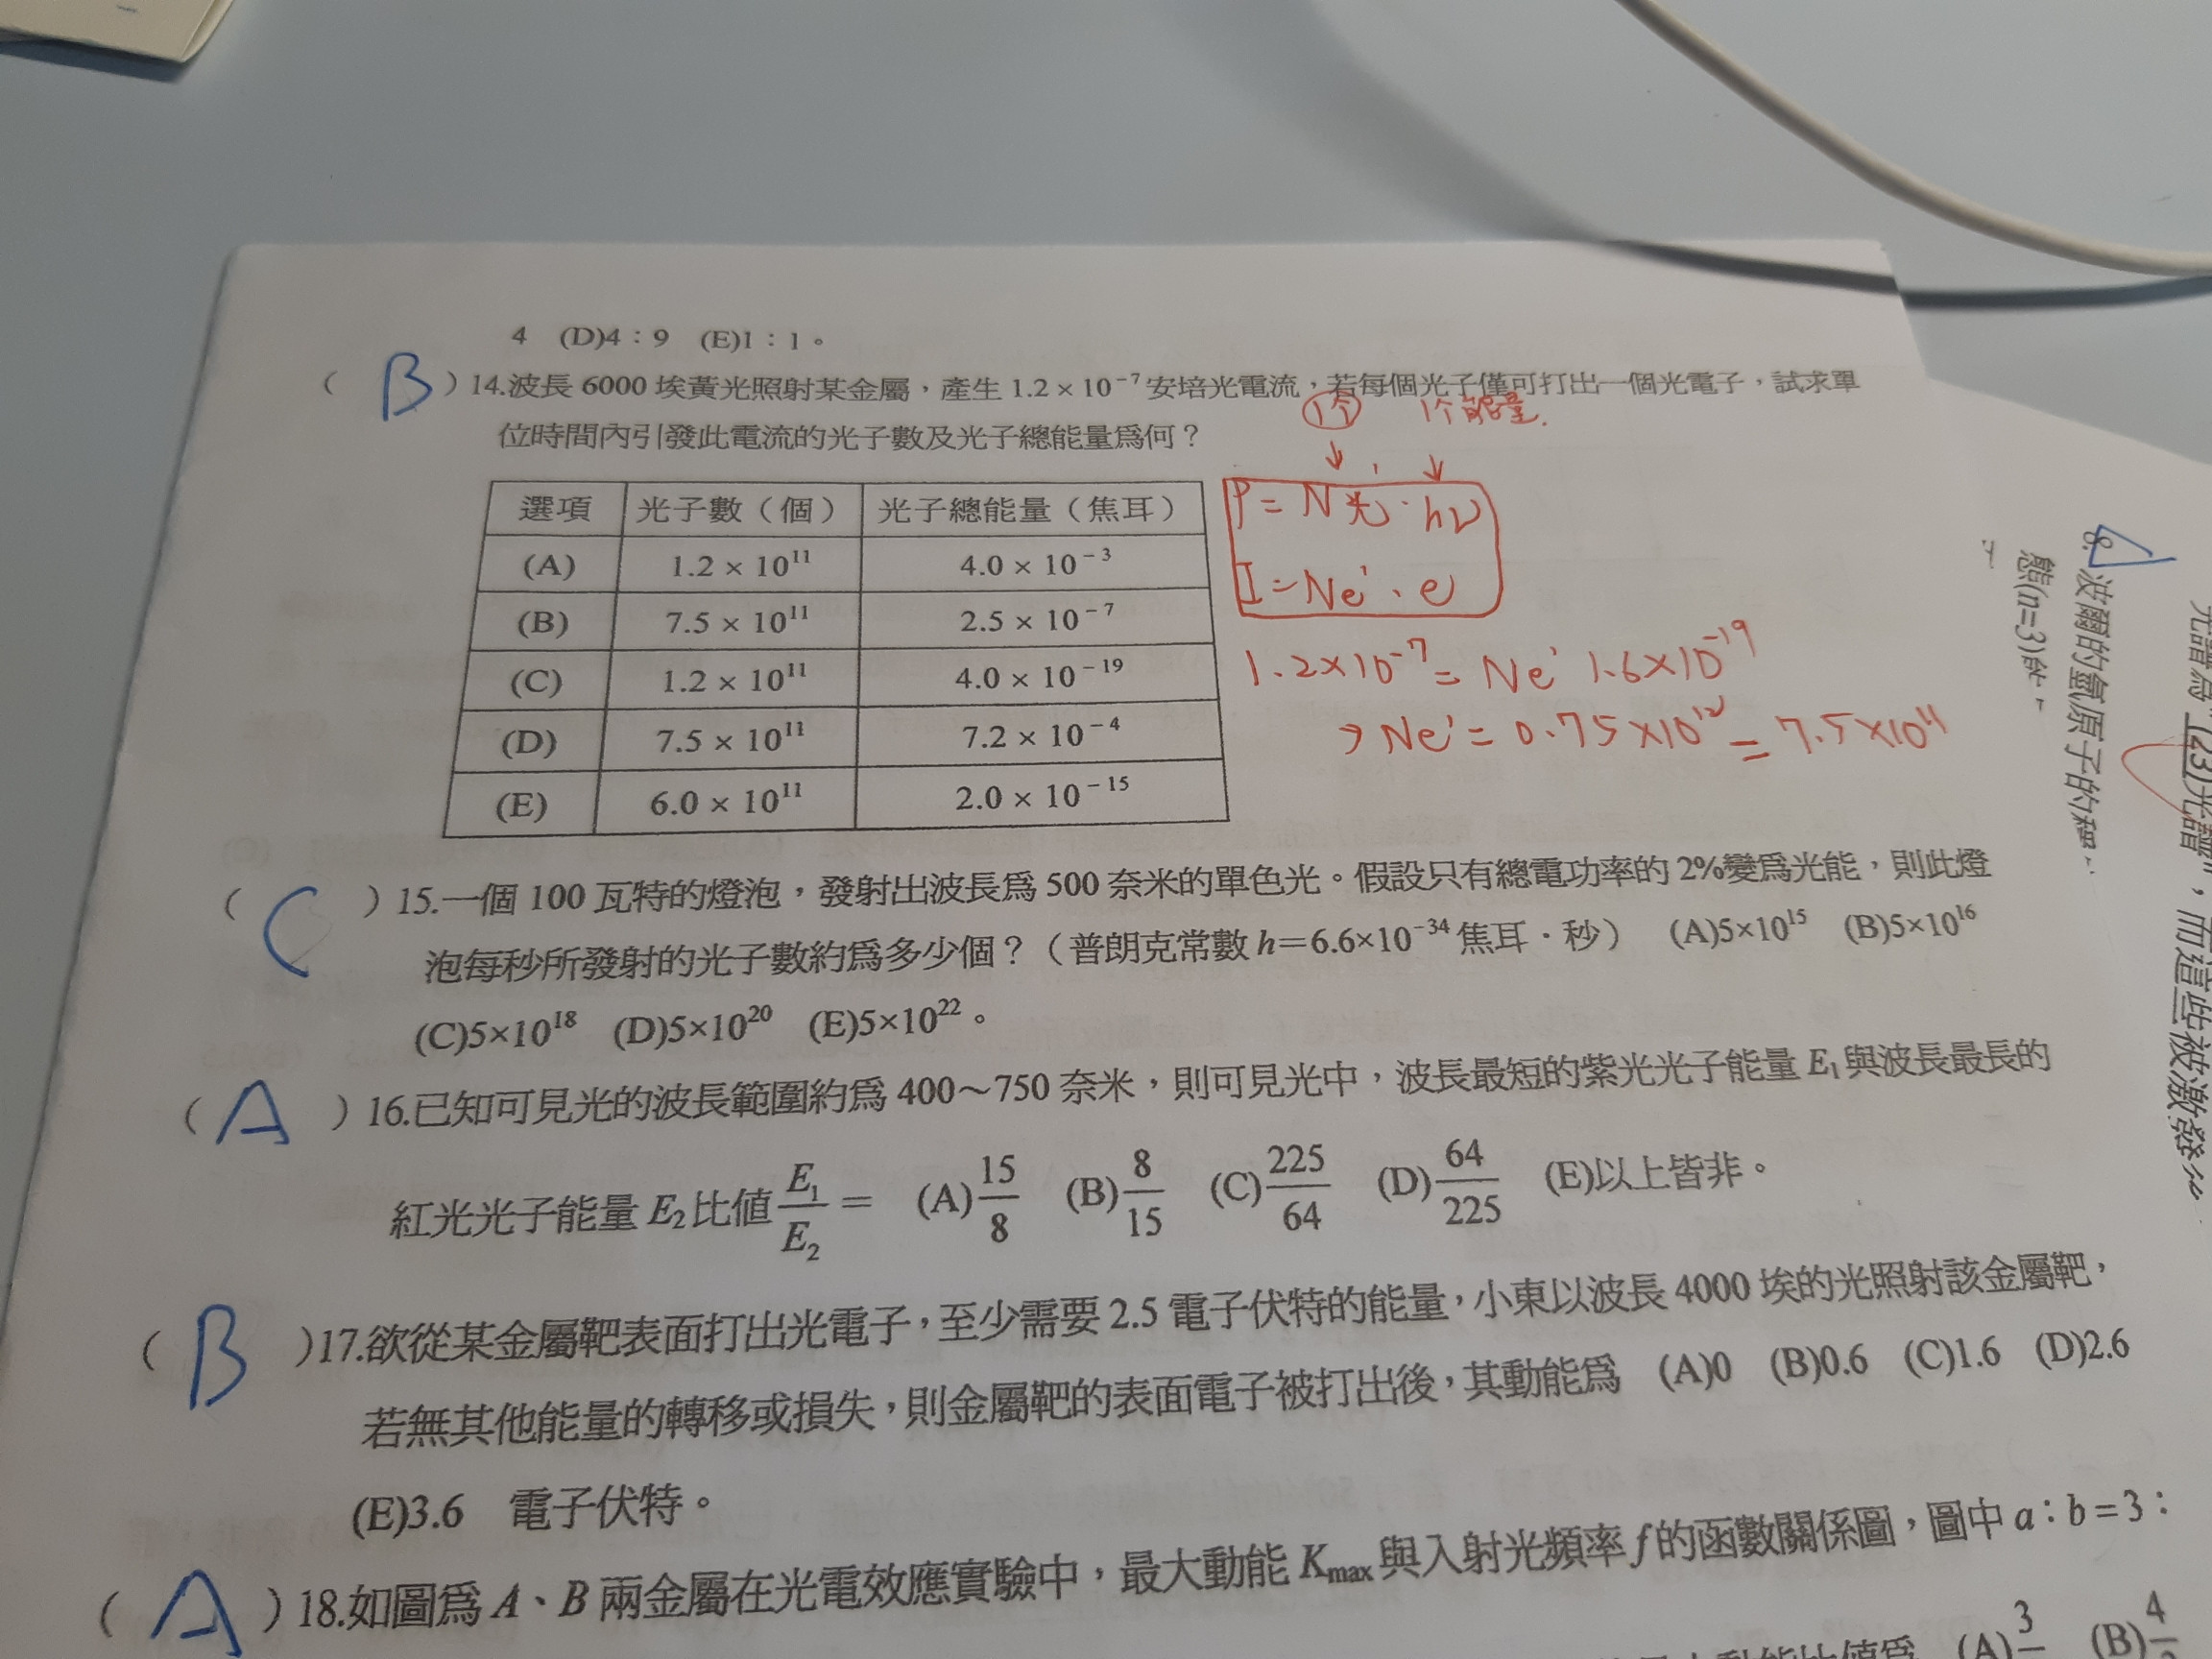 4 (D)4：9 (E)1：1。
( B )14.波長 6000 埃黃光照射某金屬，產生 1.2 × 10⁻⁷ 安培光電流，若每個光子僅可打出一個光電子，試求單
位時間內引發此電流的光子數及光子總能量為何？
1个 1个能量.
選項 光子數（個） 光子總能量（焦耳）
(A) 1.2 × 10¹¹ 4.0 × 10⁻³
(B) 7.5 × 10¹¹ 2.5 × 10⁻⁷
(C) 1.2 × 10¹¹ 4.0 × 10⁻¹⁹
(D) 7.5 × 10¹¹ 7.2 × 10⁻⁴
(E) 6.0 × 10¹¹ 2.0 × 10⁻¹⁵
P = N光' · hν
I = Ne' · e
1.2×10⁻⁷ = Ne' 1.6×10⁻¹⁹
→ Ne' = 0.75×10¹² = 7.5×10¹¹
( C )15.一個 100 瓦特的燈泡，發射出波長為 500 奈米的單色光。假設只有總電功率的 2%變為光能，則此燈
泡每秒所發射的光子數約為多少個？（普朗克常數 h＝6.6×10⁻³⁴ 焦耳．秒） (A)5×10¹⁵ (B)5×10¹⁶
(C)5×10¹⁸ (D)5×10²⁰ (E)5×10²²。
( A )16.已知可見光的波長範圍約為 400～750 奈米，則可見光中，波長最短的紫光光子能量 E₁ 與波長最長的
紅光光子能量 E₂ 比值 E₁/E₂ ＝ (A)15/8 (B)8/15 (C)225/64 (D)64/225 (E)以上皆非。
( B )17.欲從某金屬靶表面打出光電子，至少需要 2.5 電子伏特的能量，小東以波長 4000 埃的光照射該金屬靶，
若無其他能量的轉移或損失，則金屬靶的表面電子被打出後，其動能為 (A)0 (B)0.6 (C)1.6 (D)2.6
(E)3.6 電子伏特。
( A )18.如圖為 A、B 兩金屬在光電效應實驗中，最大動能 Kmax 與入射光頻率 f 的函數關係圖，圖中 a：b＝3：
動能比值為 (A)3 (B)4
8.波爾的氫原子的
態(n=3)的
光譜為"(23)光譜"，而這些被激發